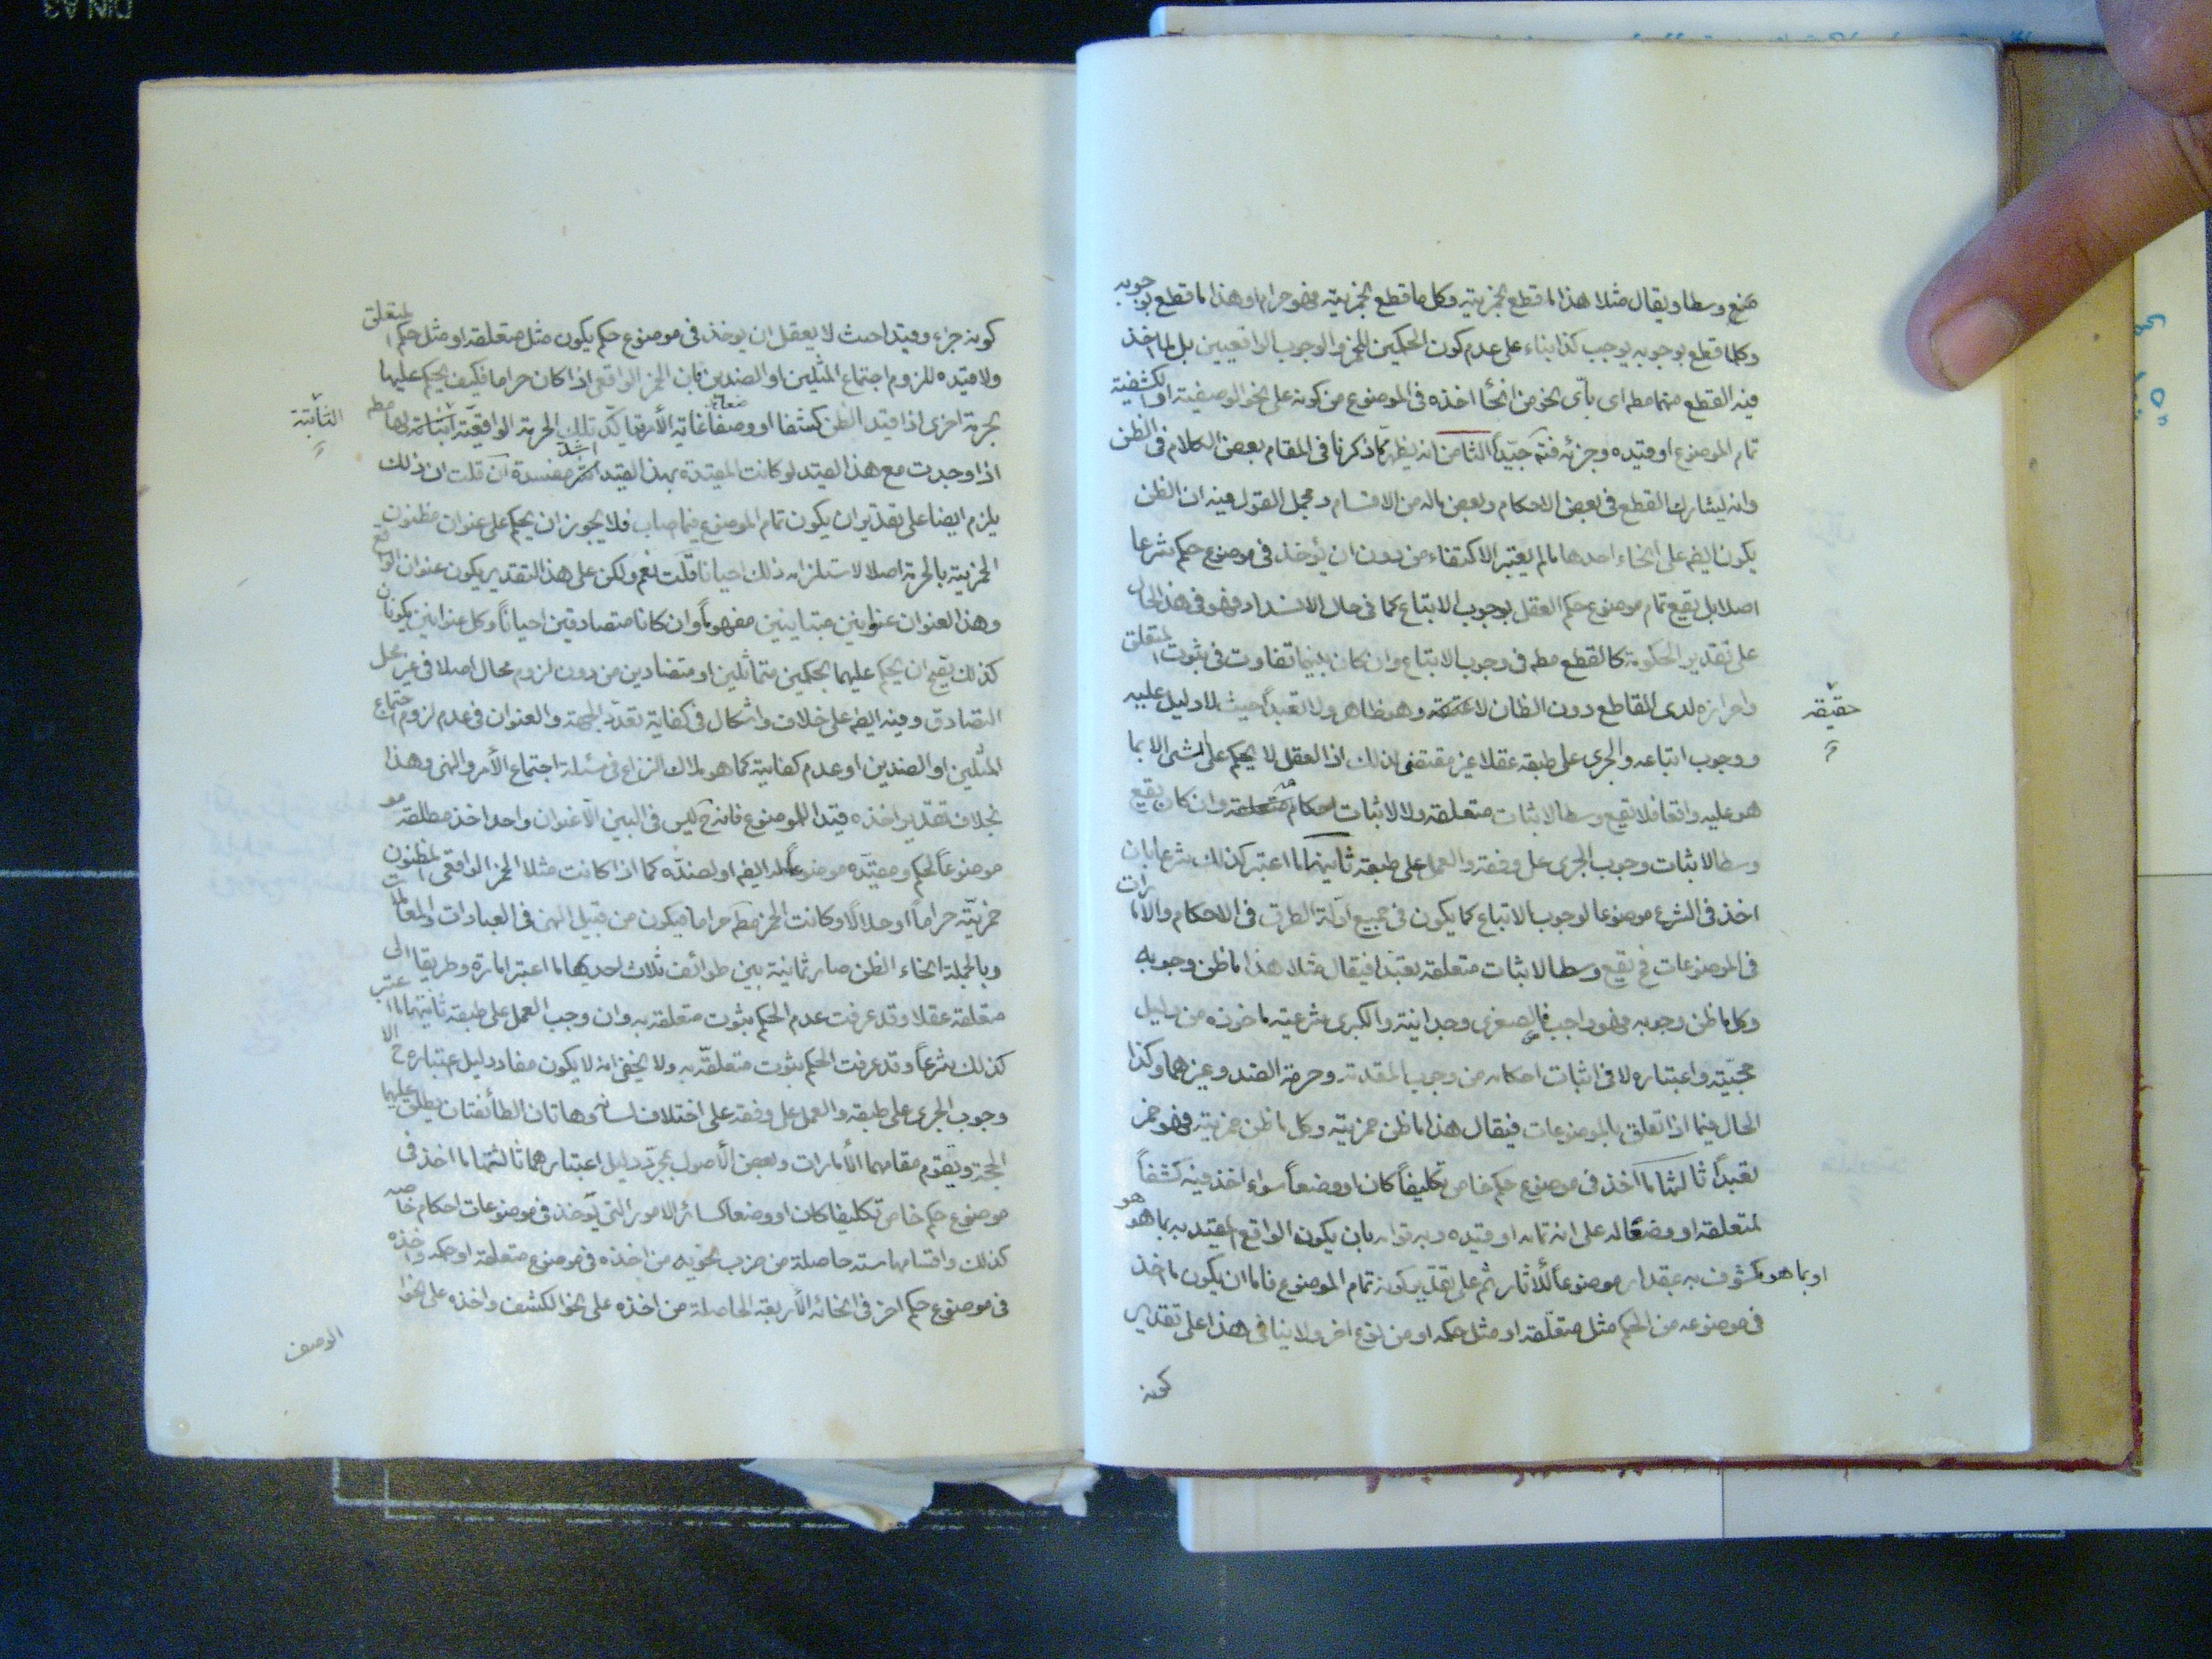 فيقع وسطا ويقال مثلا هذا ما قطع بخمريته وكل ما قطع بخمريته فهو حرام او هذا ما قطع بوجوبه
وكلما قطع بوجوبه يوجب كذا بناء على عدم كون الحكمين للخمر والوجوب الواقعيين بل لما اخذ
فيه القطع منهما مطم اى بأى نحو من انحاء اخذه فى الموضوع من كونه على نحو الوصفية او الكشفية
تمام الموضوع او قيده وجزئه فتم جيدا الثامن انه يظهر مما ذكرنا فى المقام بعض الكلام فى الظن
وانه ليشارك القطع فى بعض الاحكام وبعض ماله من الاقسام ومجمل القول فيه ان الظن
يكون ايضم على انحاء احدها ما لم يعتبر الا كتفاء من دون ان يؤخذ فى موضوع حكم شرعا
اصلا بل يقع تمام موضوع حكم العقل بوجوب الاتباع كما فى حال الانسداد فهو فى هذا الحال
على تقدير الحكومة كالقطع مطم فى وجوب الاتباع وان كان بينهما تفاوت فى ثبوت المتعلق
واحرازه لدى القاطع دون الظان لا وهو ظاهر ولا تعبدا حيث لا دليل عليه
حقيقه
ووجوب اتباعه والجرى على طبقه عقلا غير مقتضى لذلك اذ العقل لا يحكم على الشئ الا بما
هو عليه واقعا فلا يقع وسطا لاثبات متعلقه ولا لاثبات احكام متعلقه وان كان يقع
وسطا لاثبات وجوب الجرى على وفقه والعمل على طبقه ثانيهما ما اعتبر كذلك شرعا بان
اخذ فى الشرع موضوعا لوجوب الاتباع كما يكون فى جميع ادلة الطرق فى الاحكام والامارات
فى الموضوعات فح يقع وسطا لاثبات متعلقه تعبدا فيقال مثلا هذا ما ظن وجوبه
وكل ما ظن وجوبه فهو واجب فالصغرى وجدانية والكبرى شرعية ماخوذه من دليل
حجيته واعتباره لا فى اثبات احكامه من وجوب المقدمة وحرمة الضد وغيرهما وكذا
الحال فيما اذا تعلق بالموضوعات فيقال هذا ما ظن خمريته وكل ما ظن خمريته فهو خمر
تعبدا ثالثها ما اخذ فى موضوع حكم خاص تكليفا كان او وضعا سواء اخذ فيه كشفا
لمتعلقه او وصفا له على انه تمامه او قيده وبه قوامه بان يكون الواقع المقيد به بما هو هو
او بما هو مكشوف به بمقداره موضوعا للاثار ثم على تقدير كونه تمام الموضوع فاما ان يكون ما اخذ
فى موضوعه من الحكم مثل متعلقه او مثل حكمه او من نوع اخر ولا ينافى هذا على تقدير
كونه
كونه جزء وقيدا حيث لا يعقل ان يوخذ فى موضوع حكم يكون مثل متعلقه او مثل حكم المتعلق
ولا قيده للزوم اجتماع المثلين او الضدين بان الخمر الواقعى اذا كان حراما فكيف يحكم عليها
بحرمة اخرى اذا قيد الظن كشفا او وصفا غاية الأمر تاكد تلك الحرمة الواقعية لها مطم
الثابتة
اذا وجدت مع هذا القيد لو كانت المقيدة بهذا القيد اشد مفسدة ان قلت ان ذلك
يلزم ايضا على تقدير ان يكون تمام الموضوع فيما صاب فلا يجوز ان يحكم على عنوان مظنون
الخمرية بالحرمة اصلا لاستلزامه ذلك احيانا قلت نعم ولكن على هذا التقدير يكون عنوان الواقع
وهذا العنوان عنوانين متباينين مفهوما وان كانا متصادقين احيانا وكل عنوانين يكونان
كذلك يقع ان يحكم عليهما بحكمين متماثلين او متضادين من دون لزوم محال اصلا فى غير محل
التصادق وفيه ايضم على خلاف واشكال فى كفاية تعدد الجهة والعنوان فى عدم لزوم اجتماع
المثلين او الضدين او عدم كفايته كما هو ملاك النزاع فى مسئلة اجتماع الأمر والنهى وهذا
بخلاف تقدير اخذه قيدا للموضوع فانه ح ليس فى البين الا عنوان واحد اخذ مطلقه
موضوعا لحكم ومقيده موضوعا له ايضم او لضده كما اذا كانت مثلا الخمر الواقعى المظنون
خمريته حراما او حلالا وكانت الخمر مطم حراما فيكون من قبيل النهى فى العبادات والمعاملات
وبالجملة انحاء الظن صار ثمانية بين طوائف ثلاث احديها ما اعتبر امارة وطريقا الى
متعلقه عقلا وقد عرفت عدم الحكم بثبوت متعلقه به وان وجب العمل على طبقه ثانيتها ما اعتبر
كذلك شرعا وقد عرفت الحكم بثبوت متعلقه به ولا يخفى انه لا يكون مفاد دليل اعتباره ح الا
وجوب الجرى على طبقه والعمل على وفقه على اختلاف لسانه وهاتان الطائفتان يطلق عليهما
الحجة ويقوم مقامهما الأمارات وبعض الأصول بمجرد دليل اعتبارهما ثالثتها ما اخذ فى
موضوع حكم خاص تكليفا كان او وضعا كسائر الامور التى يؤخذ فى موضوعات احكام خاصه
كذلك واقسامها ستة حاصلة من ضرب نحويه من اخذه فى موضوع متعلقه او حكمه واخذه
فى موضوع حكم اخر فى انحائه الأربعة الحاصلة من اخذه على نحو الكشف واخذه على نحو
الوصف